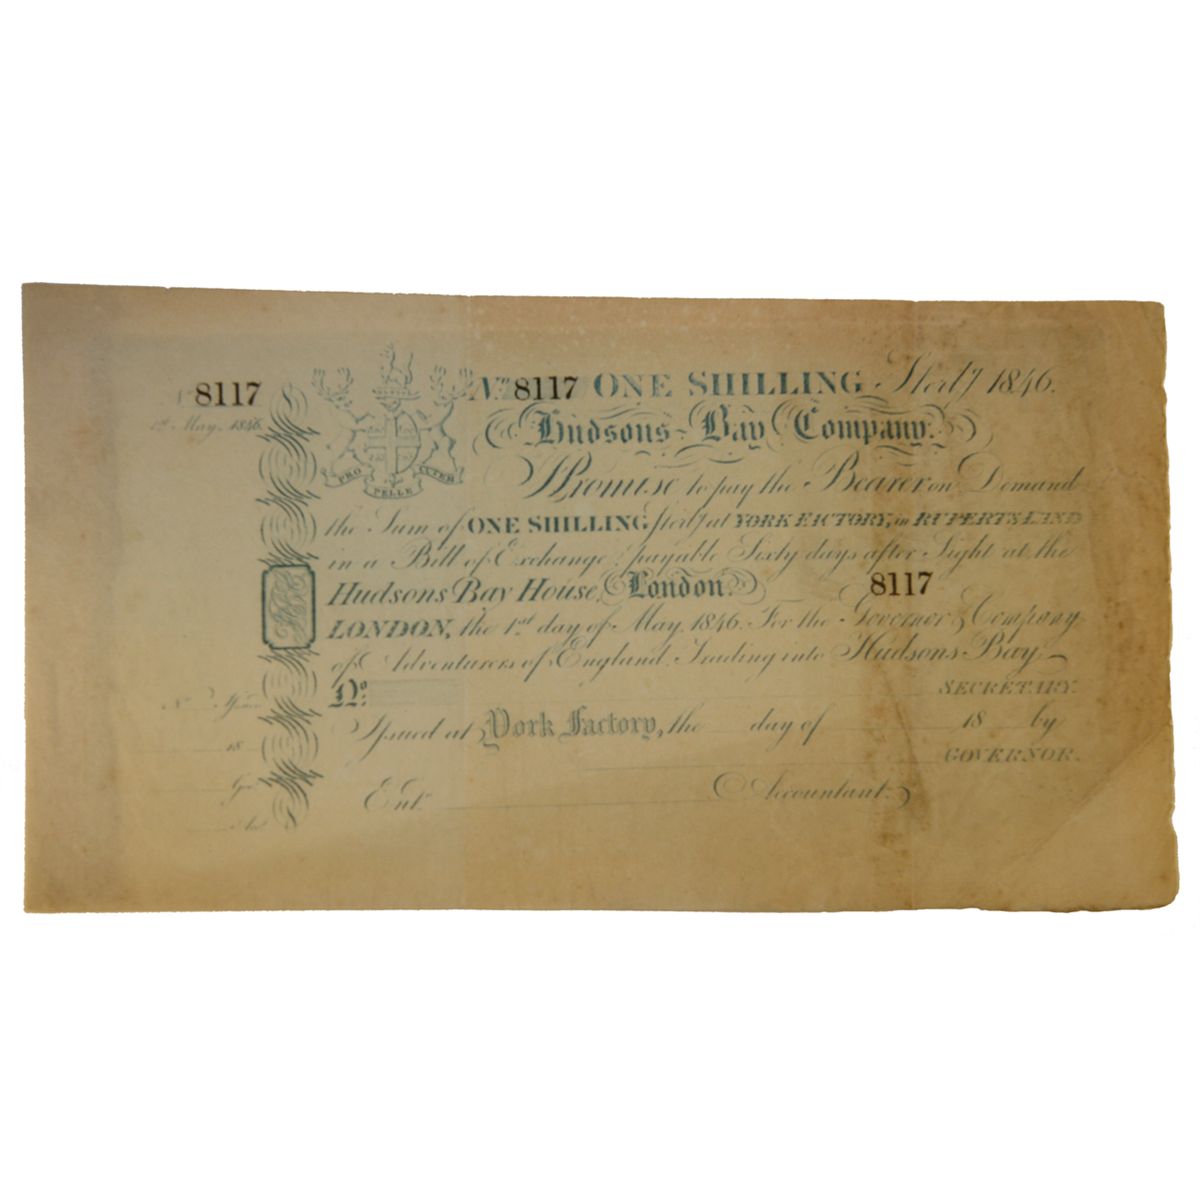 8117
1st May 1846
PRO PELLE CUTEM
No. 8117 ONE SHILLING Sterlg 1846.
Hudsons Bay Company.
I Promise to pay the Bearer on Demand
the Sum of ONE SHILLING Sterlg at YORK FACTORY, in RUPERTS LAND
in a Bill of Exchange payable Sixty days after Sight at the
Hudsons Bay House, London. 8117
LONDON, the 1st day of May 1846. For the Governor & Company
of Adventurers of England Trading into Hudsons Bay
SECRETARY.
No.
Issued at York Factory, the day of 18 by
GOVERNOR.
Entd. Accountant.
18
Gr.
Acct.